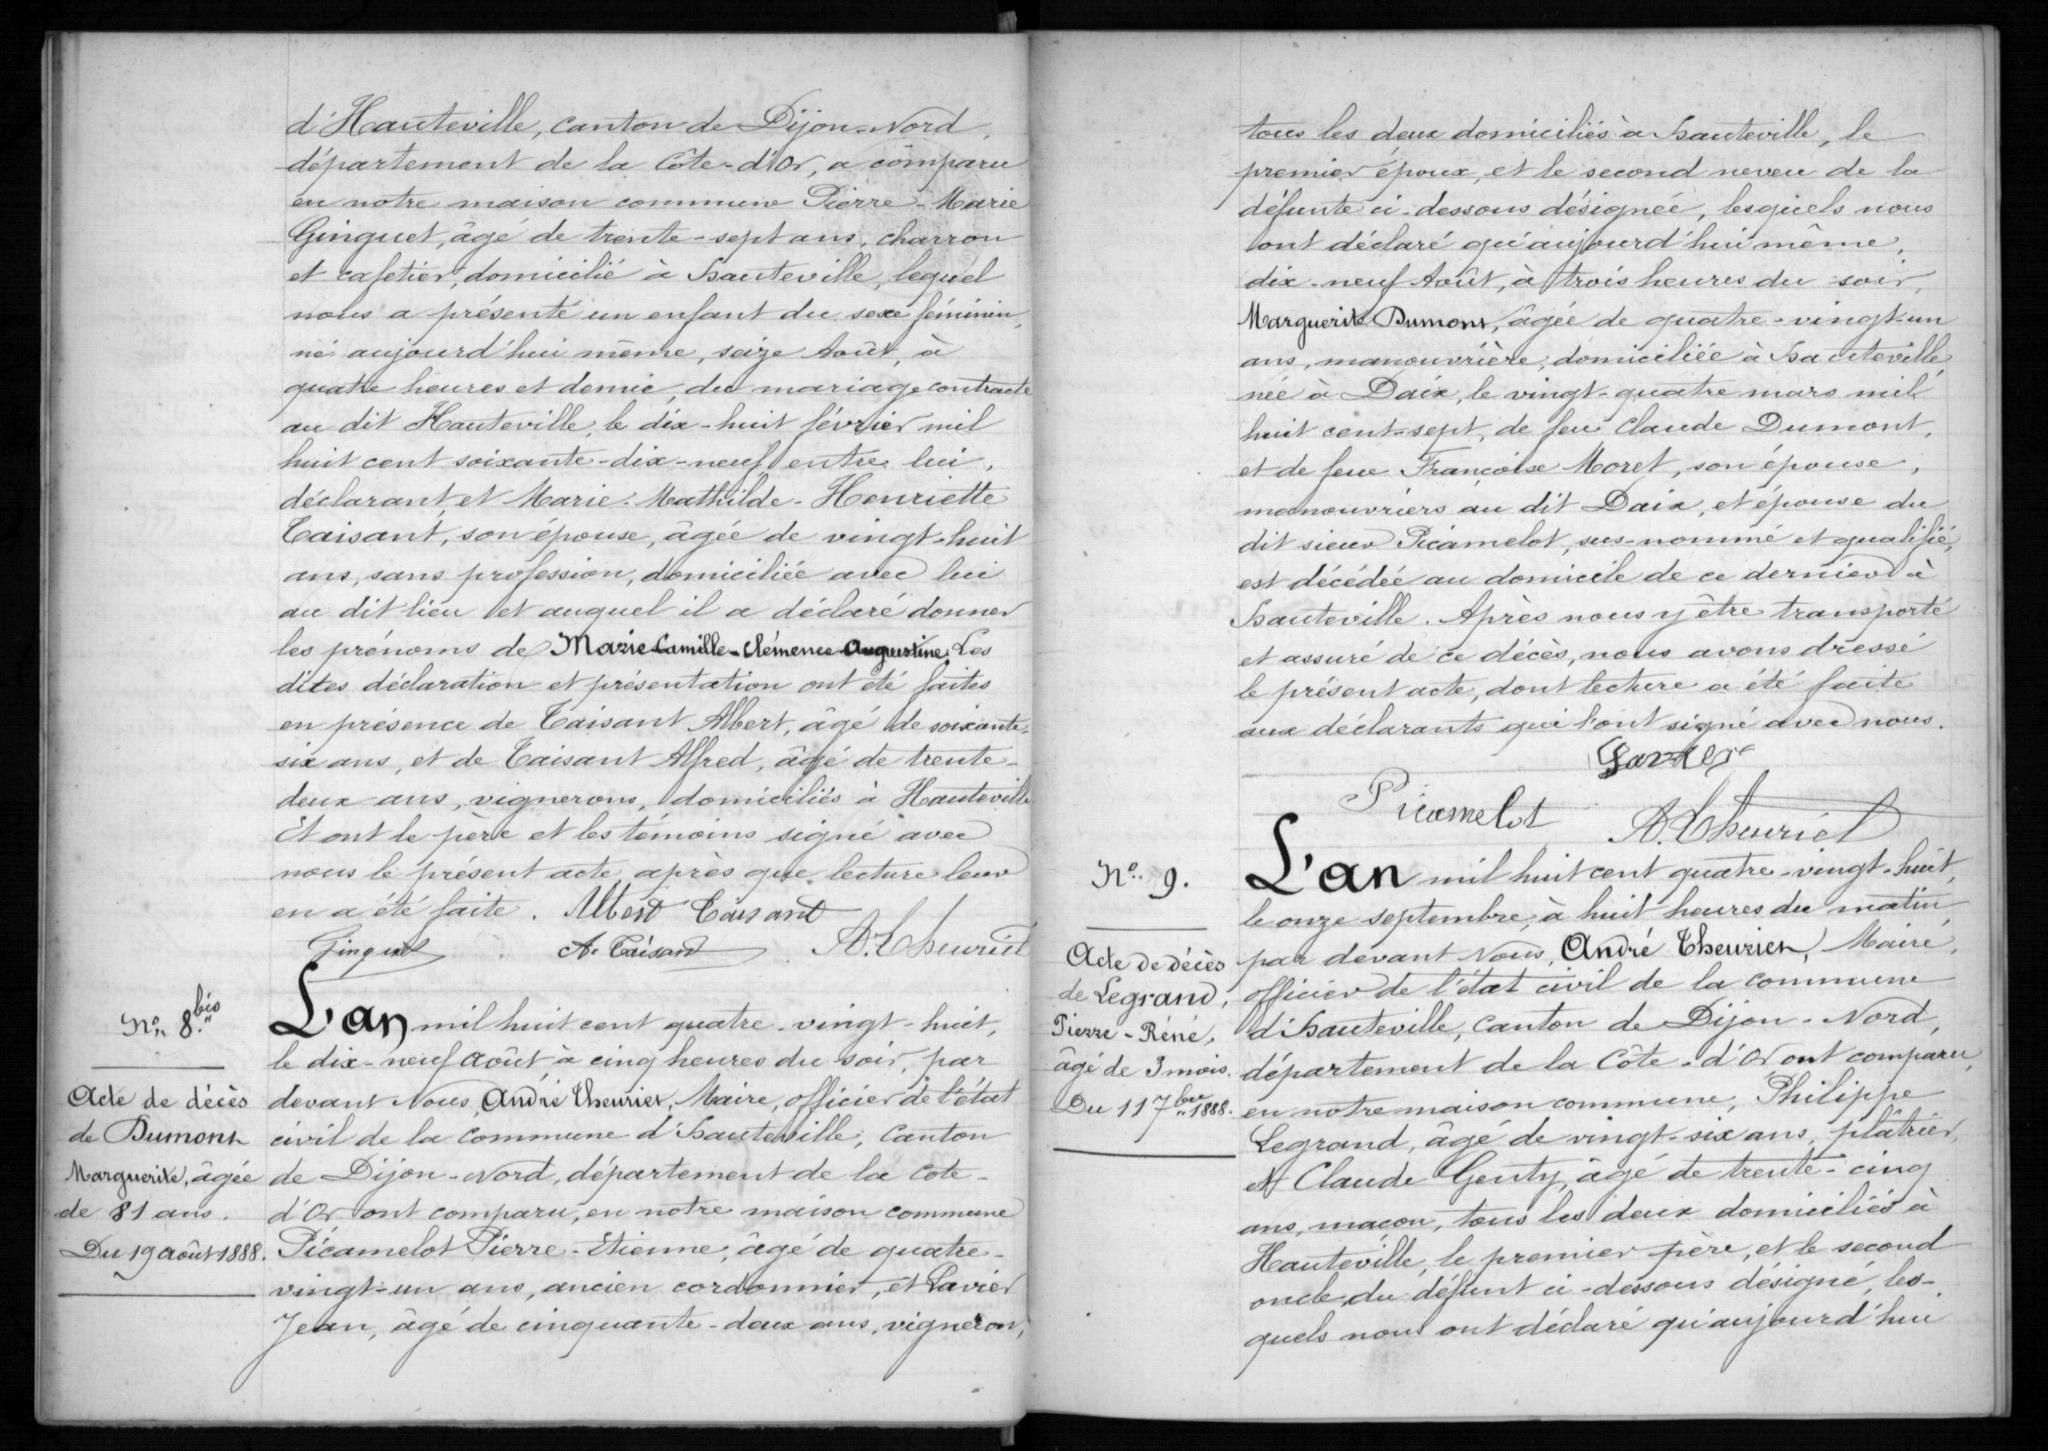 d'Hauteville, canton de Dijon-Nord,
département de la Côte-d'Or, a comparu
en notre maison commune Pierre-Marie
Ginguet, âgé de trente-sept ans, charron
et cafetier, domicilié à Hauteville, lequel
nous a présenté un enfant du sexe féminin,
né aujourd'hui même, seize Août, à
quatre heures et demie, du mariage contracté
au dit Hauteville, le dix-huit février mil
huit cent soixante-dix-neuf entre lui,
déclarant, et Marie-Mathilde-Henriette
Taisant, son épouse, âgée de vingt-huit
ans, sans profession, domiciliée avec lui
au dit lieu et auquel il a déclaré donner
les prénoms de Marie-Camille-Clémence-Augustine. Les
dites déclaration et présentation ont été faites
en présence de Taisant Albert, âgé de soixante-
six ans, et de Taisant Alfred, âgé de trente-
deux ans, vignerons, domiciliés à Hauteville
Et ont le père et les témoins signé avec
nous le présent acte, après que lecture leur
en a été faite. Albert Taisant
Ginguet A. Taisant A. Theuriet
No. 8 bis
Acte de décès
de Dumont
Marguerite, âgée
de 81 ans.
Du 19 août 1888.
L'an mil huit cent quatre-vingt-huit,
le dix-neuf août, à cinq heures du soir, par
devant Nous, André Theuriet, Maire, officier de l'état
civil de la commune d'Hauteville, canton
de Dijon-Nord, département de la Cote-
d'Or ont comparu, en notre maison commune
Picamelot Pierre-Etienne, âgé de quatre-
vingt-un ans, ancien cordonnier, et Lavier
Jean, âgé de cinquante-deux ans, vigneron,
tous les deux domiciliés à Hauteville, le
premier époux, et le second neveu de la
défunte ci-dessous désignée, lesquels nous
ont déclaré qu'aujourd'hui même,
dix-neuf Août, à trois heures du soir,
Marguerite Dumont, âgée de quatre-vingt-un
ans, manouvrière, domiciliée à Hauteville,
née à Daix, le vingt-quatre mars mil
huit cent-sept, de feu Claude Dumont,
et de feue Françoise Moret, son épouse,
manouvriers au dit Daix, et épouse du
dit sieur Picamelot, sus-nommé et qualifié,
est décédée au domicile de ce dernier à
Hauteville. Après nous y être transporté
et assuré de ce décès, nous avons dressé
le présent acte, dont lecture a été faite
aux déclarants qui l'ont signé avec nous.
Lavier
Picamelot A. Theuriet
No. 9.
Acte de décès
de Legrand,
Pierre-Réné,
âgé de 3 mois.
Du 11 7bre 1888.
L'an mil huit cent quatre-vingt-huit,
le onze septembre, à huit heures du matin
par devant Nous, André Theuriet, Maire,
officier de l'état civil de la commune
d'Hauteville, canton de Dijon-Nord,
département de la Côte-d'Or, ont comparu,
en notre maison commune, Philippe
Legrand, âgé de vingt-six ans, plâtrier,
et Claude Genty, âgé de trente-cinq
ans, maçon, tous les deux domiciliés à
Hauteville, le premier père, et le second
oncle, du défunt ci-dessous désigné, les-
quels nous ont déclaré qu'aujourd'hui